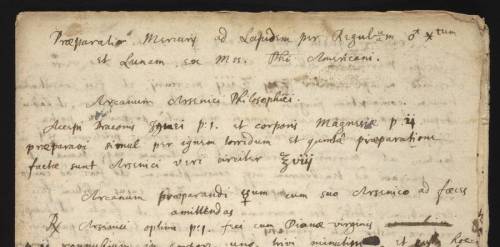 Præparatio Mercurij ad Lapidem per Regulum ♂ ☓tum
et Lunam, ex Mss. Phi Americani.
Arcanum Arsenici Philosophici.
Accepi Draconis Ignei p.j. et corporis Magnesiæ p. ij
præparavi simul per ignem torridum et quintâ præparatione
facta sunt Arsenici veri circiter ℥ viij
Arcanum præparandi ☿um cum suo Arsenico ad fæces
amittendas
℞ Arsenici optimi p.j. fiei cum Dianæ virginis